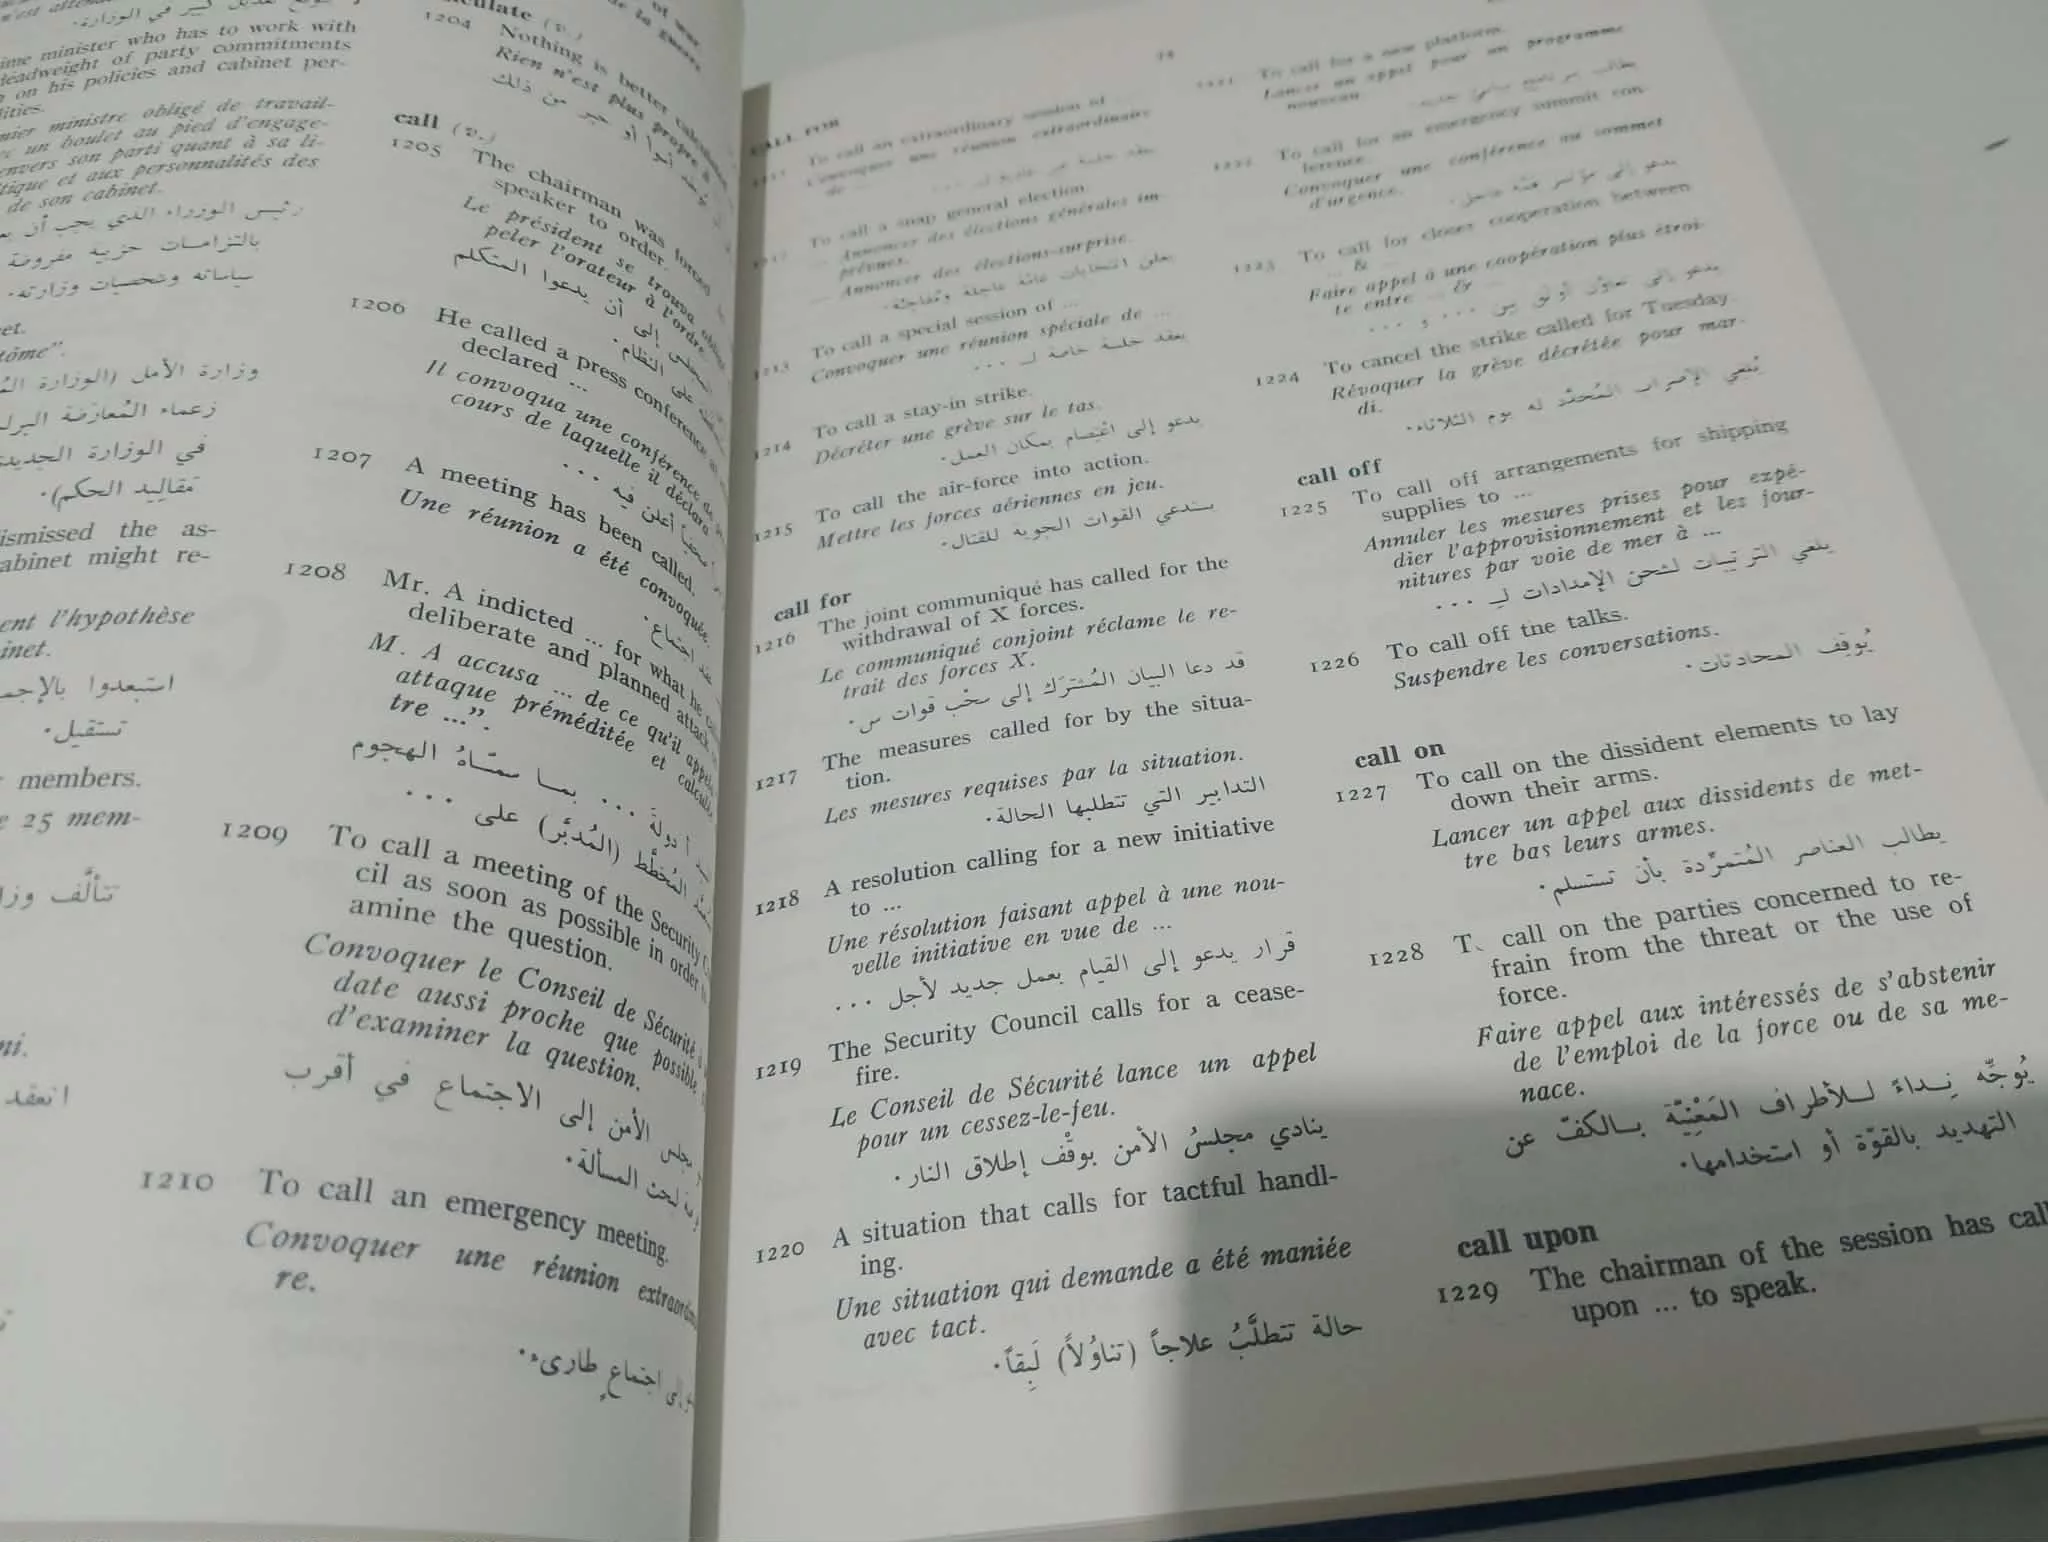 ime minister who has to work with
deadweight of party commitments
on his policies and cabinet per-
mier ministre obligé de travail-
un boulet au pied d'engage-
envers son parti quant à sa li-
tique et aux personnalités des
de son cabinet.
رئيس الوزراء الذي يجب أن
بالتزامات حزبية مفروضة
وشخصيات وزارته.
وزارة الأمل (الوزارة
زعماء المُعارَضة
في الوزارة الجديدة
مَقاليد الحكم).
ismissed the as-
abinet might re-
ent l'hypothèse
inet.
استبعدوا
تستقيل.
members.
25 mem-
تتألَّف
انعقد
1204 Nothing is better calculated
Rien n'est plus propre à
call (v.)
1205 The chairman was forced
speaker to order.
Le président se trouva
peler l'orateur à l'ordre.
إلى أن يدعوا المتكلم
النظام.
1206 He called a press conference
declared ...
Il convoqua une conférence de
cours de laquelle il déclara
أعلن فيه ...
1207 A meeting has been called.
Une réunion a été convoquée.
اجتماع.
1208 Mr. A indicted ... for what he
deliberate and planned attack
M. A accusa ... de ce qu'il
attaque préméditée et
tre ...".
دولةَ ... بمـا سمّـاهُ الهجوم
المُخطَّط (المُدبَّر) على ...
1209 To call a meeting of the Security
cil as soon as possible in order
amine the question.
Convoquer le Conseil de Sécurité
date aussi proche que possible
d'examiner la question.
مجلس الأمن إلى الاجتماع في أقرب
لبحث المسألة.
1210 To call an emergency meeting.
Convoquer une réunion
re.
اجتماعٍ طارىء.
CALL FOR
To call an extraordinary session of
Convoquer une réunion extraordinaire
de
To call a snap general election.
Annoncer des élections générales im-
prévues.
Annoncer des élections-surprise.
يعلن انتخابات عامّة عاجلة
1213 To call a special session of ...
Convoquer une réunion spéciale de ...
يعقد جلسة خاصة لـ ...
1214 To call a stay-in strike.
Décréter une grève sur le tas.
يدعو إلى اعْتِصام بمكان العمل.
1215 To call the air-force into action.
Mettre les forces aériennes en jeu.
يستدعي القوات الجوية للقتال.
call for
1216 The joint communiqué has called for the
withdrawal of X forces.
Le communiqué conjoint réclame le re-
trait des forces X.
قد دعا البيان المُشترَك إلى سحْب قوات س.
1217 The measures called for by the situa-
tion.
Les mesures requises par la situation.
التدابير التي تتطلبها الحالة.
1218 A resolution calling for a new initiative
to ...
Une résolution faisant appel à une nou-
velle initiative en vue de ...
قرار يدعو إلى القيام بعمل جديد لأجل ...
1219 The Security Council calls for a cease-
fire.
Le Conseil de Sécurité lance un appel
pour un cessez-le-feu.
ينادي مجلسُ الأمن بوقْف إطلاق النار.
1220 A situation that calls for tactful handl-
ing.
Une situation qui demande a été maniée
avec tact.
حالة تتطلَّبُ علاجاً (تناوُلاً) لَبِقاً.
1221 To call for a new platform.
Lancer un appel pour un programme
nouveau.
1222 To call for an emergency summit con-
ference.
Convoquer une conférence au sommet
d'urgence.
1223 To call for closer cooperation between
... & ...
Faire appel à une coopération plus étroi-
te entre ... & ...
1224 To cancel the strike called for Tuesday.
Révoquer la grève décrétée pour mar-
di.
يُلغي الإضراب المُحدَّد له يوم الثلاثاء.
call off
1225 To call off arrangements for shipping
supplies to ...
Annuler les mesures prises pour expé-
dier l'approvisionnement et les four-
nitures par voie de mer à ...
يلغي الترتيبات لشحن الإمدادات لـ ...
1226 To call off the talks.
Suspendre les conversations.
يُوقِف المحادثات.
call on
1227 To call on the dissident elements to lay
down their arms.
Lancer un appel aux dissidents de met-
tre bas leurs armes.
يطالب العناصر المُتمرِّدة بأن تستسلم.
1228 T. call on the parties concerned to re-
frain from the threat or the use of
force.
Faire appel aux intéressés de s'abstenir
de l'emploi de la force ou de sa me-
nace.
يُوجِّه نِـداءً لـلأطراف المَعْنِيّة بـالكفّ عن
التهديد بالقوّة أو استخدامها.
call upon
1229 The chairman of the session has call
upon ... to speak.